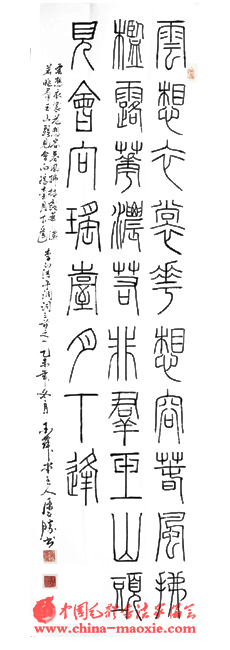 雲想衣裳華想容春風拂
檻露華濃若非羣玉山頭
見會向瑤臺月下逢
云想衣裳花想容春风拂槛露华浓
若非群玉山头见会向瑶台月下逢
李白清平调词三首之一 乙未年冬月
www.china-maoxie.com